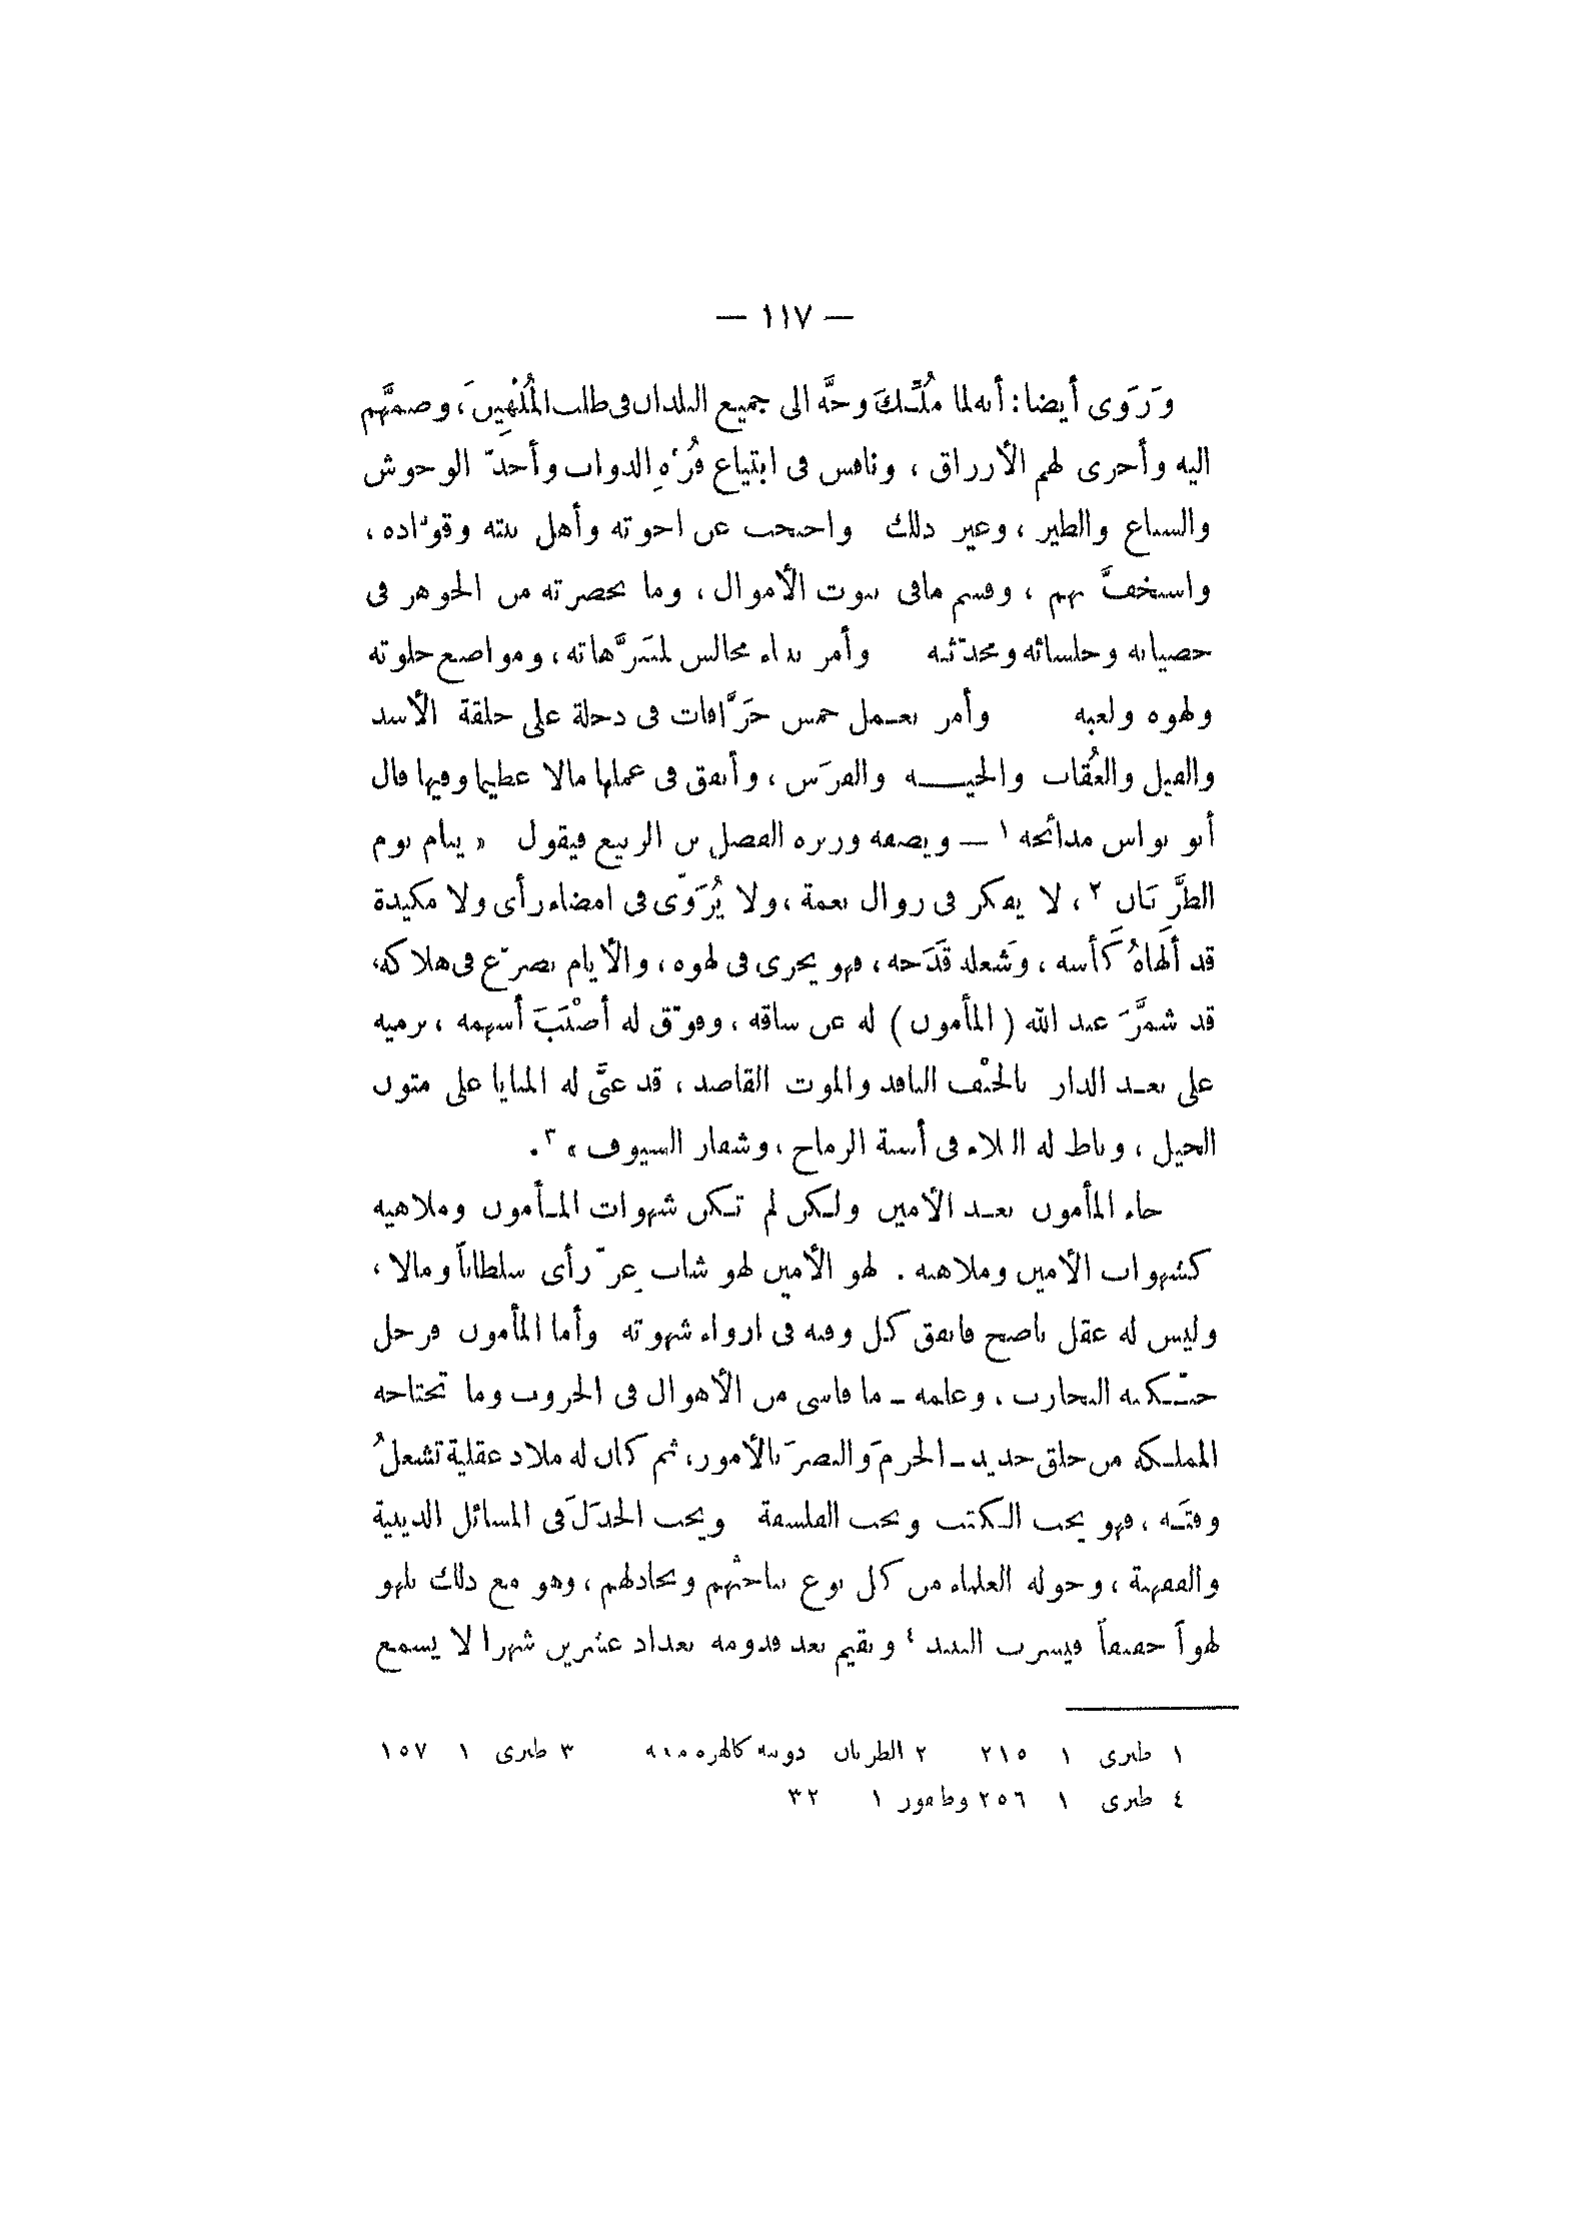 — ١١٧ —
وَرَوَى أيضا: أنه لما مُلِّكَ وجَّه الى جميع البلدان فى طلب المُلْهِينَ، وضمَّهم
اليه وأجرى لهم الأرزاق ، ونافس فى ابتياع فُرْهِ الدواب وأخذ الوحوش
والسباع والطير ، وغير ذلك واحتجب عن اخوته وأهل بيته وقوّاده ،
واستخفَّ بهم ، وقسم مافى بيوت الأموال ، وما بحضرته من الجوهر فى
خصيانه وجلسائه ومحدّثيه وأمر ببناء مجالس لمتنزَّهاته ، ومواضع خلوته
ولهوه ولعبه وأمر بعمل خمس حَرَّاقات فى دجلة على خلقة الأسد
والفيل والعُقاب والحيـة والفرَس ، وأنفق فى عملها مالا عظيما وفيها قال
أبو نواس مدائحه ١ — ويصفه وزيره الفضل بن الربيع فيقول « ينام نوم
الظَّرِبَان ٢ ، لا يفكر فى زوال نعمة ، ولا يُرَوّى فى امضاء رأى ولا مكيدة
قد ألهاهُ كَأسه ، وشَغله قَدَحه ، فهو يجرى فى لهوه ، والأيام تضرّع فى هلاكه،
قد شمَّرَ عبد الله ( المأمون ) له عن ساقه ، وفوّق له أصْيَبَ أسهمه ، يرميه
على بعـد الدار بالحتْف النافذ والموت القاصد ، قد عبَّى له المنايا على متون
الخيل ، وناط له البلاء فى أسنة الرماح ، وشفار السيوف » ٣ .
جاء المأمون بعـد الأمين ولكن لم تكن شهوات المأمون وملاهيه
كشهوات الأمين وملاهيه . لهو الأمين لهو شاب غِرّ رأى سلطاناً ومالا ،
وليس له عقل ناضج فانفق كل وقته فى ارواء شهوته وأما المأمون فرجل
حنّكته التجارب ، وعلمه ـ ما قاسى من الأهوال فى الحروب وما تحتاجه
المملكة من خلق جديد ـ الحزمَ والبصرَ بالأمور ، ثم كان له ملاذ عقلية تشغلُ
وقتَـه ، فهو يحب الكتب ويحب الفلسفة ويحب الجدَلَ فى المسائل الدينية
والفقهية ، وحوله العلماء من كل نوع يباحثهم ويجادلهم ، وهو مع ذلك يلهو
لهواً خفيفاً فيشرب النبيذ ٤ ويقيم بعد قدومه بغداد عشرين شهرا لا يسمع
١ طبرى ١ ٢١٥ ٢ الظربان دويبة كالهرة منتنة ٣ طبرى ١ ١٥٧
٤ طبرى ١ ٢٥٦ وطيفور ١ ٣٢